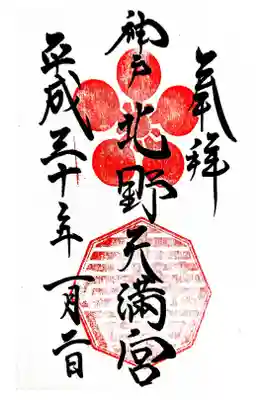 奉拝
神戸 北野天満宮
平成三十年一月二日